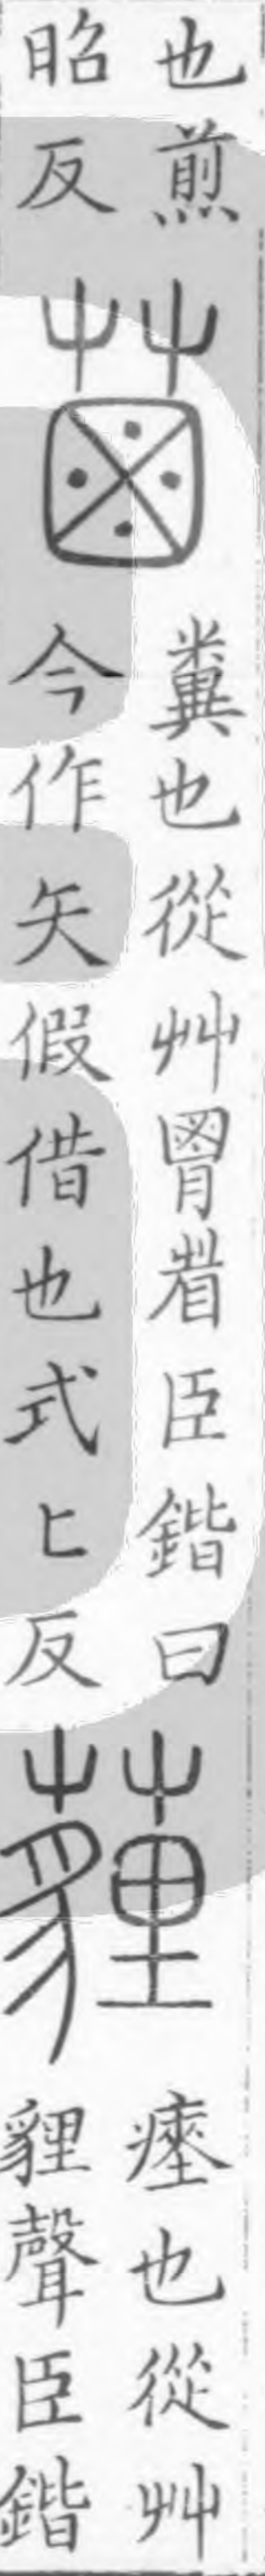 也煎
昭反
𦳊
糞也從艸胃省臣鍇曰
今作矢假借也式匕反
薶
瘞也從艸
貍聲臣鍇